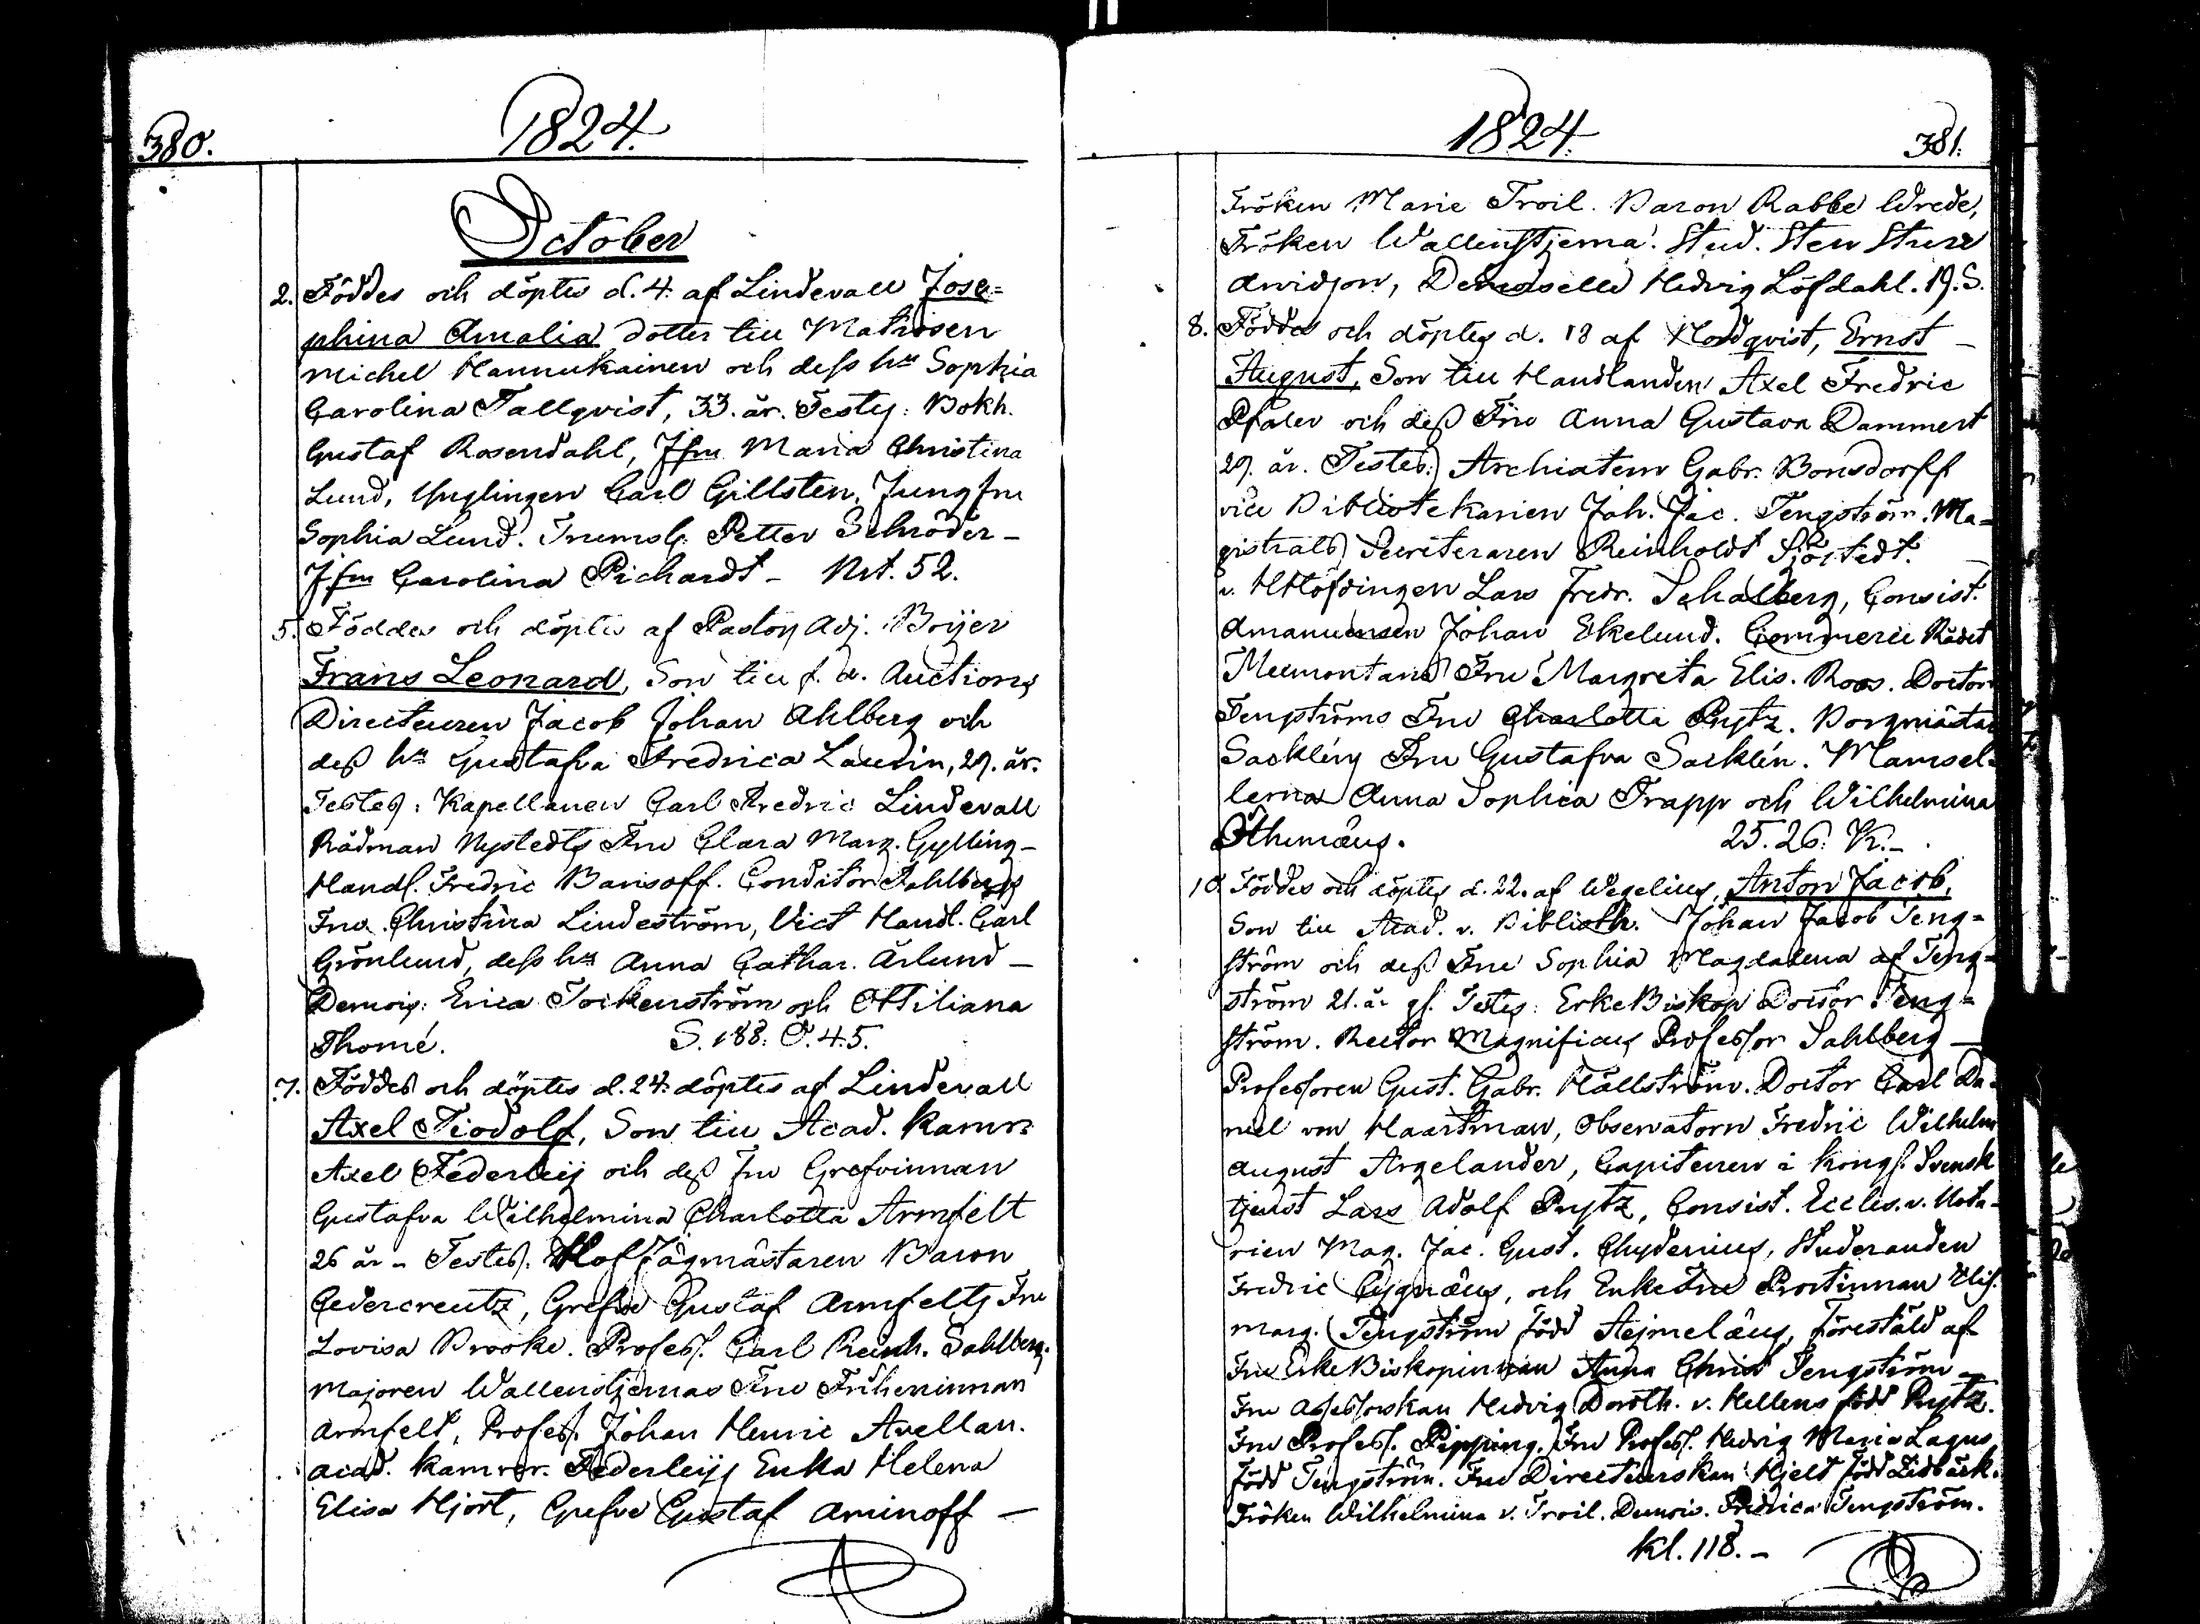 380.
1824.
October
2. Föddes och döptes d. 4. af Lindevall Jose=
phina Amalia dotter till Matrosen
Michel Hannukainen och dess h:u Sophia
Carolina Tallqvist, 33. år. Testes: Bokh.
Gustaf Rosendahl, Jfru Maria Christina
Lund, Ynglingen Carl Gillsten, Jungfru
Sophia Lund. Trumsl. Petter Schröder –
Jfru Carolina Pichardt – Nrt. 52.
5. Föddes och döptes af Pastors Adj. Boijer
Frans Leonard, Son till f. d. Auctions
Directeuren Jacob Johan Ahlberg och
dess h:u Gustafva Fredrica Laurin, 29. år.
Testes: Kapellanen Carl Fredric Lindevall
Rådman Nystedts Fru Clara Marg. Gylling –
Handl. Fredric Barsoff. Conditor Dahlbergs
Fru Christina Lindeström, Vict Handl. Carl
Grönlund, dess h:u Anna Cathar. Ärlund –
Demois: Erica Tockenström och Ottiliana
Thomé. S. 188. T. 45.
7. Föddes och döptes d. 24. döptes af Lindevall
Axel Fiodolf, Son till Acad. Kamr:
Axel Federleij och dess Fru Grefvinnan
Gustafva Wilhelmina Charlotta Armfelt
26 år – Testes. Hof Jägmästaren Baron
Cedercreutz, Grefve Gustaf Armfelts Fru
Lovisa Brooke. Profess. Carl Reinh. Sahlberg.
Majoren Wallenstjernas Fru Friherrinnan
Armfelt, Profess. Johan Henric Avellan.
Acad. Kamrer. Federleijs Enka Helena
Elisa Hjort, Grefve Gustaf Aminoff –
1824.
381.
Fröken Marie Troil. Baron Rabbe Wrede,
Fröken Wallenstjerna. Stud. Sten Sture
Arvidson, Demoiselle Hedvig Löfdahl. 19. S.
8. Föddes och döptes d. 18 af Nordqvist, Ernst –
August, Son till Handlanden Axel Fredric
Pfaler och dess Fru Anna Gustava Dammert
29. år. Testes: Archiatern Gabr. Bonsdorff
vice Bibliotekarien Joh. Jac. Tengström. Ma=
gistrats Secreteraren Reinholdt Sjöstedt.
v. HHöfdingen Lars Fredr. Schalberg, Consist.
Amanuensen Johan Ekelund. Commerce Rådet
Meemontans Fru Margreta Elis. Roos. Doctor
Tengströms Fru Charlotta Prytz. Borgmästar
Sackléns Fru Gustafva Sacklén. Mamsel=
lerna Anna Sophia Trapp och Wilhelmina
Othmæus. 25. 26. K. –
10. Föddes och döptes d. 22. af Wegelius, Anton Jacob,
Son till Acad. v. Biblioth. Johan Jacob Teng=
ström och dess Fru Sophia Magdalena af Teng=
ström 21. år gl. Testes: ErkeBiskop Doctor Teng=
ström. Rector Magnificus Professor Sahlberg –
Professoren Gust. Gabr. Hällström. Doctor Carl Da=
niel von Haartman, Observatorn Fredric Wilhelm
August Argelander, Capitenen i Kongl. Svensk
tjenst Lars Adolf Prytz, Consist. Eccles. v. Nota=
rien Mag. Jac. Gust. Chydenius, Studeranden
Fredric Cygnæus, och EnkeFru Prostinnan Elis.
Marg. Tengström född Aejmelæus, förestäld af
Fru ErkeBiskopinnan Anna Christ Tengström –
Fru Assessorskan Hedvig Doroth. v. Hellens född Prytz.
Fru Profess. Pipping. Fru Profess. Hedvig Maria Lagus
född Tengström. Fru Directeurskan Hjelt född Lidbäck.
Fröken Wilhelmina v. Troil. Demois. Fredrica Tengström.
Kl. 118. –